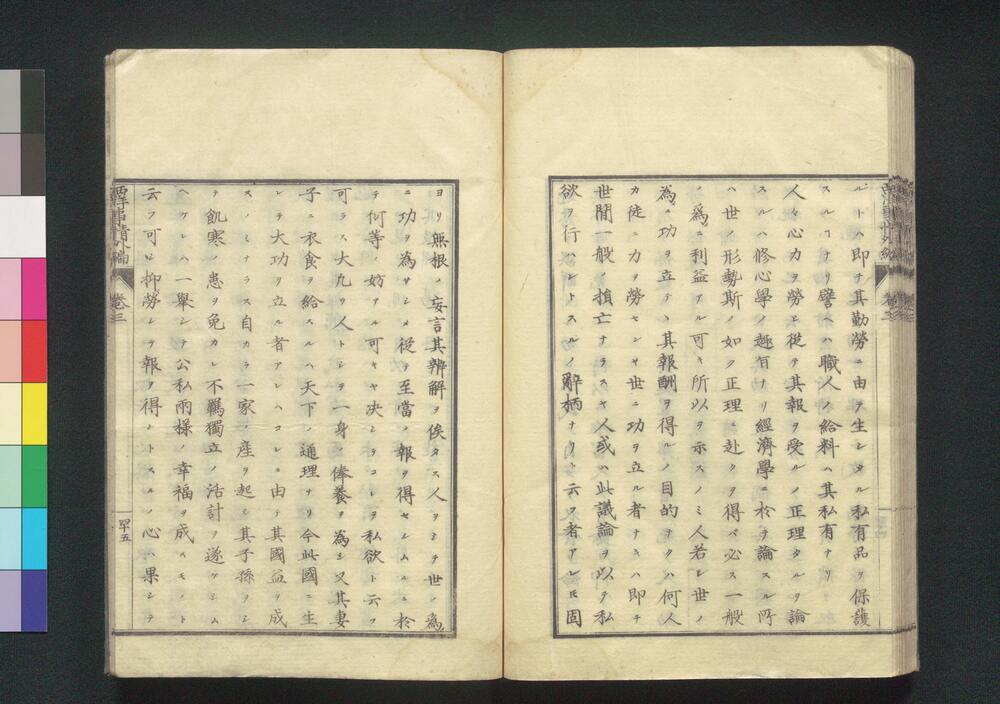 ルトハ即チ其勤勞ニ由テ生シタル私有品ヲ保護
スルヿナリ譬ヘハ職人ノ給料ハ其私有ナリ
人々心力ヲ勞シ從テ其報ヲ受ルノ正理タルヲ論
スルハ修心學ノ趣旨ナリ經濟學ニ於テ論スル所
ハ世ノ形勢斯ノ如ク正理ニ赴クヲ得バ必ス一般
ノ爲ニ利益アル可キ所以ヲ示スノミ人若シ世ノ
為ニ功ヲ立テヽ其報酬ヲ得ルノ目的ナクハ何人
カ徒ニ力ヲ勞センヤ世ニ功ヲ立ル者ナキハ即チ
世間一般ノ損亡ナラスヤ人或ハ此議論ヲ以テ私
欲ヲ行ハレトスルノ辭柄ナリト云フ者アレ𪜈固
ヨリ無根ノ妄言其辨解ヲ俟タス人ヲシテ世ノ為
ニ功ヲ為サシメ從テ至當ノ報ヲ得セシムルニ於
テ何等ノ妨アル可キヤ决シテコレヲ私欲ト云フ
可ラス大凡ソ人トシテ一身ノ俸養ヲ為シ又其妻
子ニ衣食ヲ給スルハ天下ノ通理ナリ今此國ニ生
レテ大功ヲ立ル者アレハコレニ由テ其國益ヲ成
スノミナラス自カラ一家ノ産ヲ起シ其子孫ヲシ
テ飢寒ノ患ヲ免カレ不羈獨立ノ活計ヲ遂ケシム
ヘケレハ一擧シテ公私兩樣ノ幸福ヲ成スモノト
云フ可シ抑勞シテ報ヲ得ントスルノ心ハ果シテ
西洋事情外編
卷三
四十五